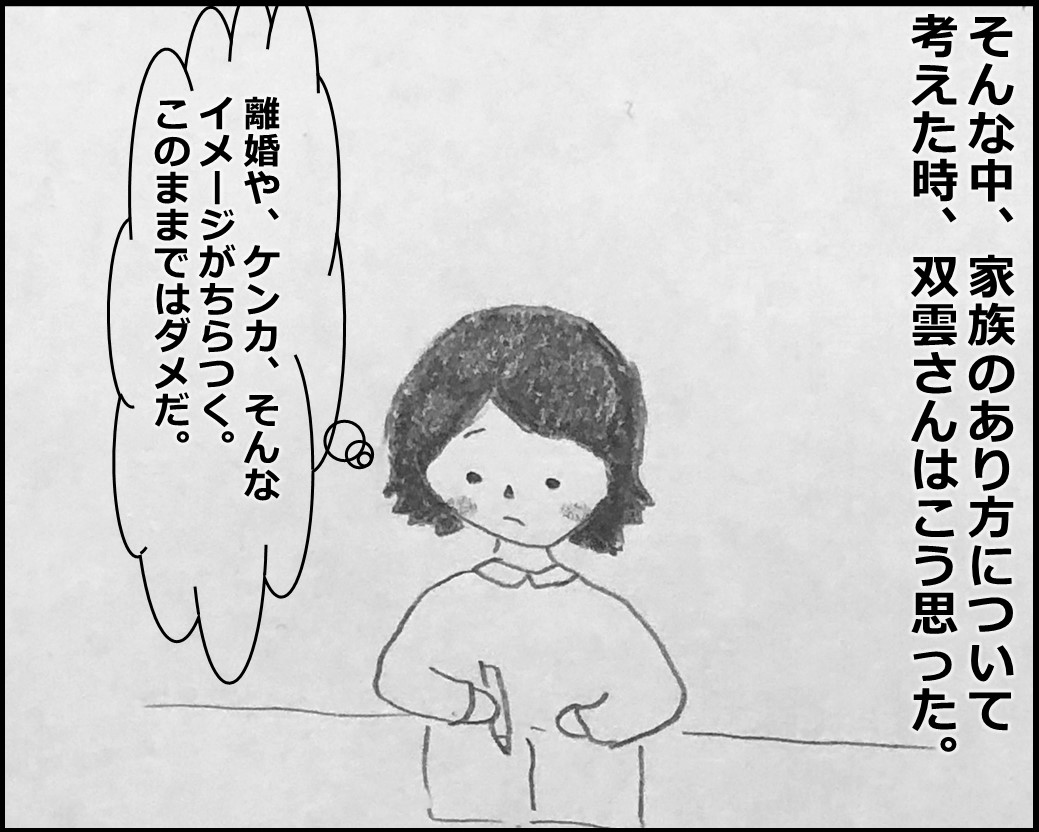 そんな中、家族のあり方について
考えた時、双雲さんはこう思った。
離婚や、ケンカ、そんな
イメージがちらつく。
このままではダメだ。